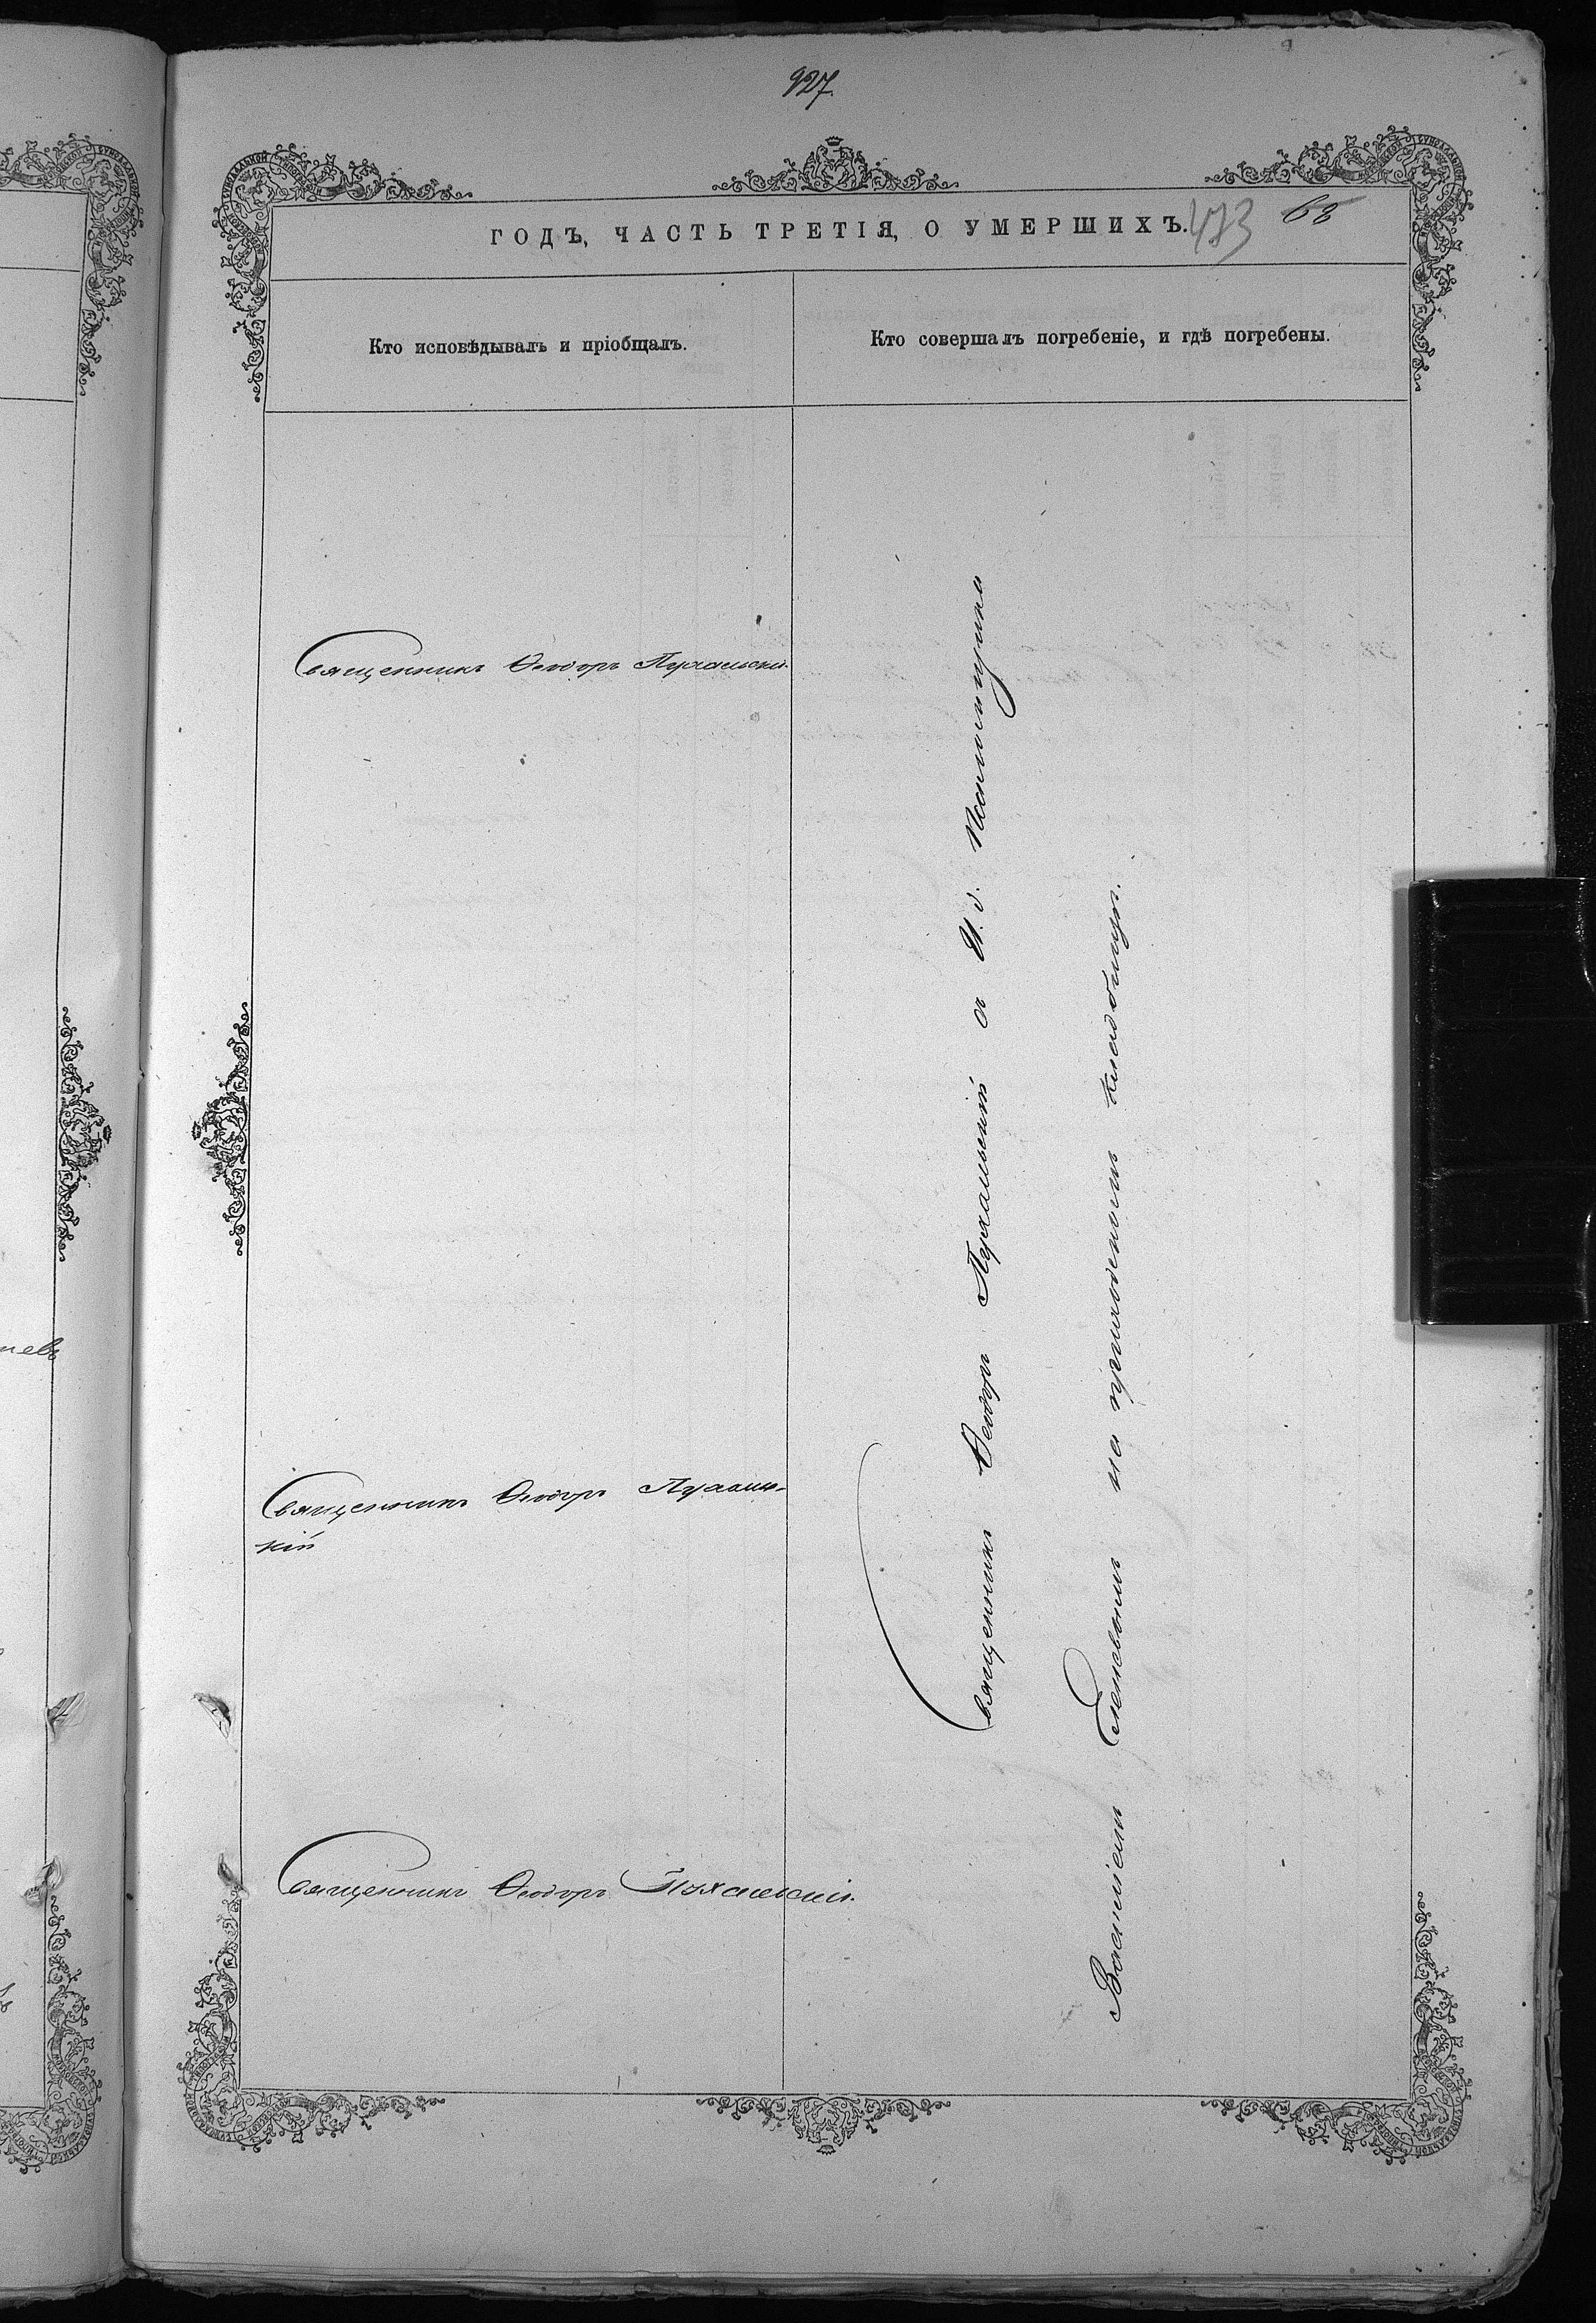 927.
ГОДЪ, ЧАСТЬ ТРЕТІЯ, О УМЕРШИХЪ.
473
68
Кто исповѣдывалъ и пріобщалъ.
Кто совершалъ погребеніе, и гдѣ погребены.
Священникъ Ѳеодоръ Пухальскій.
Священникъ Ѳеодоръ Пухальс-
кій
Священникъ Ѳеодоръ Пухальскій.
Священникъ Ѳеодоръ Пухальскій съ И. д. Псаломщика
Василіемъ на приходскомъ кладбищѣ.